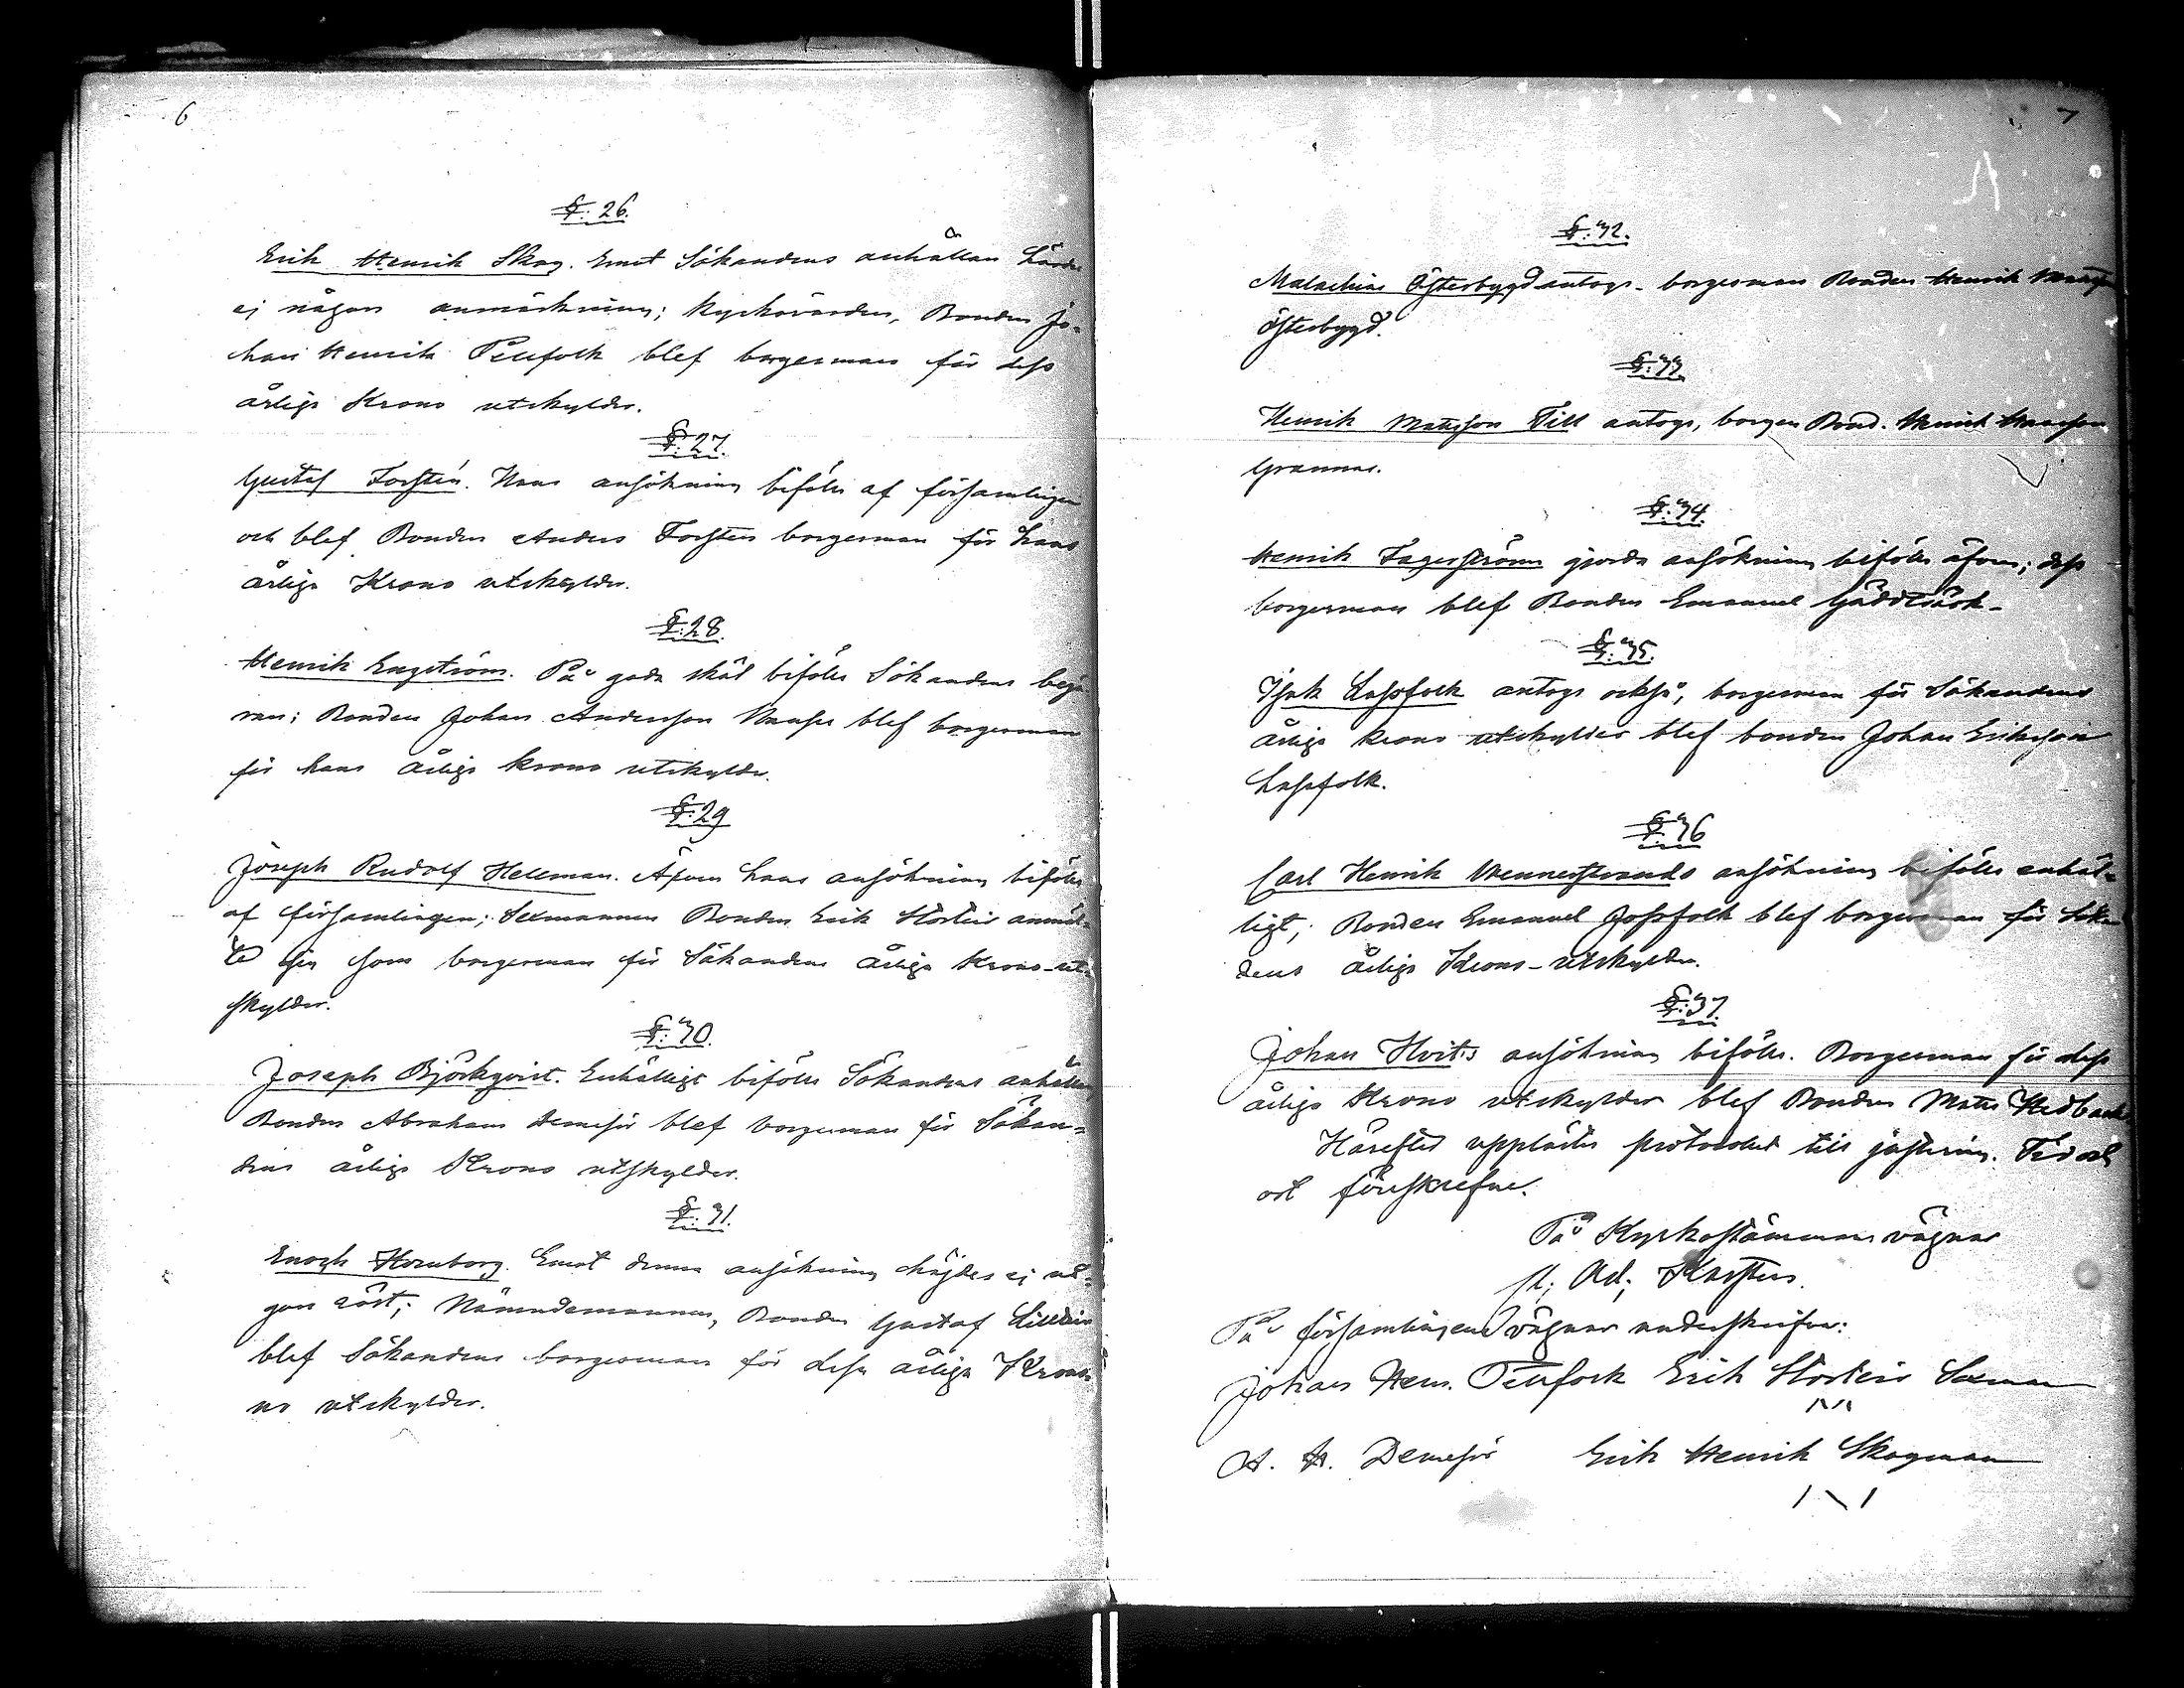 6
§: 26.
Erik Henrik Skog. Emot Sökandens anhållan hördes
ej någon anmärkning; Kyrkovärden, Bonden Jo-
han Henrik Pellfolk blef borgesman för dess
årliga Krono utskylder.
§: 27.
Gustaf Forstén. Hans ansökning biföles af församlingen
och blef Bonden Anders Forstén borgesman för hans
årliga Krono utskylder.
§: 28.
Henrik Engström. På goda skäl biföles Sökandens begä
ran; Bonden Johan Andersson blef borgesman
för hans årliga krono utskylder.
§: 29
Joseph Rudolf Hellman. Äfven hans ansökning biföles
af församlingen; Sexmannen Bonden Erik Storteir anmäl-
te sig som borgesman för Sökandens årliga Krono-ut-
skylder.
§: 30.
Joseph Björkqvist. Enhälligt biföles Sökandens anhållan
Bonden Abraham Demesjö blef borgesman för Sökan-
dens årliga Krono utskylder.
§: 31.
Enoch Hornborg. Emot denna ansökning höjdes ej nå-
gon röst; Nämndemannen, Bonden Gustaf
blef Sökandens borgesman för dess årliga Kro-
no utskylder.
7
§: 32.
Malachias Österbygd antogs - borgesman Bonden Henrik Mattss
Österbygd.
§: 33.
Henrik Mattsson Till antogs, borgen Bond. Henrik Hansson
Grannas.
§: 34.
Henrik Fagerströms gjorda ansökning biföles äfven; dess
borgesman blef Bonden Emanuel Gäddträsk-
§: 35.
Isak Lassfolk antogs också, borgesman för Sökandens
årliga krono utskylder blef bonden Johan Eriksson
Lassfolk.
§: 36
Carl Henrik Wennerstrands ansökning biföles enhäl-
ligt; Bonden Emanuel Jossfolk blef borgesman för Sökan
dens årliga Krono-utskylder.
§: 37.
Johan Hvits ansökning biföles. Borgesman för dess
årliga Krono utskylder blef Bonden Matts Hedback.
Härefter upplästes protocollet till justering. Tid och
ort föreskrefne.
På Kyrkostämmans vägnar
Ad; Karsten.
På församlingens vägnar underskrifva:
Johan Hen. Pellfolk Erik Storteir Sexman
A. A. Demesjö Erik Henrik Skogman